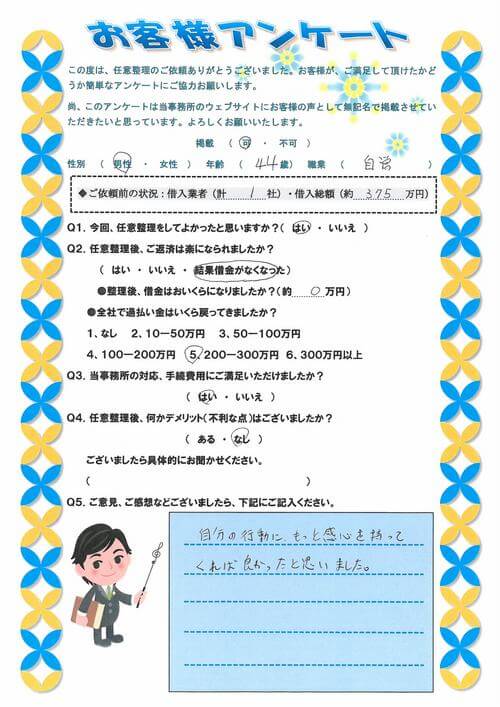 お客様アンケート
この度は、任意整理のご依頼ありがとうございました。お客様が、ご満足して頂けたかど
うか簡単なアンケートにご協力お願いします。
尚、このアンケートは当事務所のウェブサイトにお客様の声として無記名で掲載させてい
ただきたいと思っています。よろしくお願いいたします。
掲載 ( 可 ・ 不可 )
性別 ( 男性 ・ 女性 ) 年齢 ( 44 歳) 職業 ( 自営 )
◆ご依頼前の状況:借入業者(計 1 社)・借入総額(約 375 万円)
Q1. 今回、任意整理をしてよかったと思いますか?( はい ・ いいえ )
Q2. 任意整理後、ご返済は楽になられましたか?
( はい ・ いいえ ・ 結果借金がなくなった)
●整理後、借金はおいくらになりましたか?(約 0 万円)
●全社で過払い金はいくら戻ってきましたか?
1、なし 2、10-50万円 3、50-100万円
4、100-200万円 5、200-300万円 6、300万円以上
Q3. 当事務所の対応、手続費用にご満足いただけましたか?
( はい ・ いいえ )
Q4. 任意整理後、何かデメリット(不利な点)はございましたか?
( ある ・ なし )
ございましたら具体的にお聞かせください。
( )
Q5. ご意見、ご感想などございましたら、下記にご記入ください。
自分の行動に、もっと感心を持って
くれば良かったと思いました。